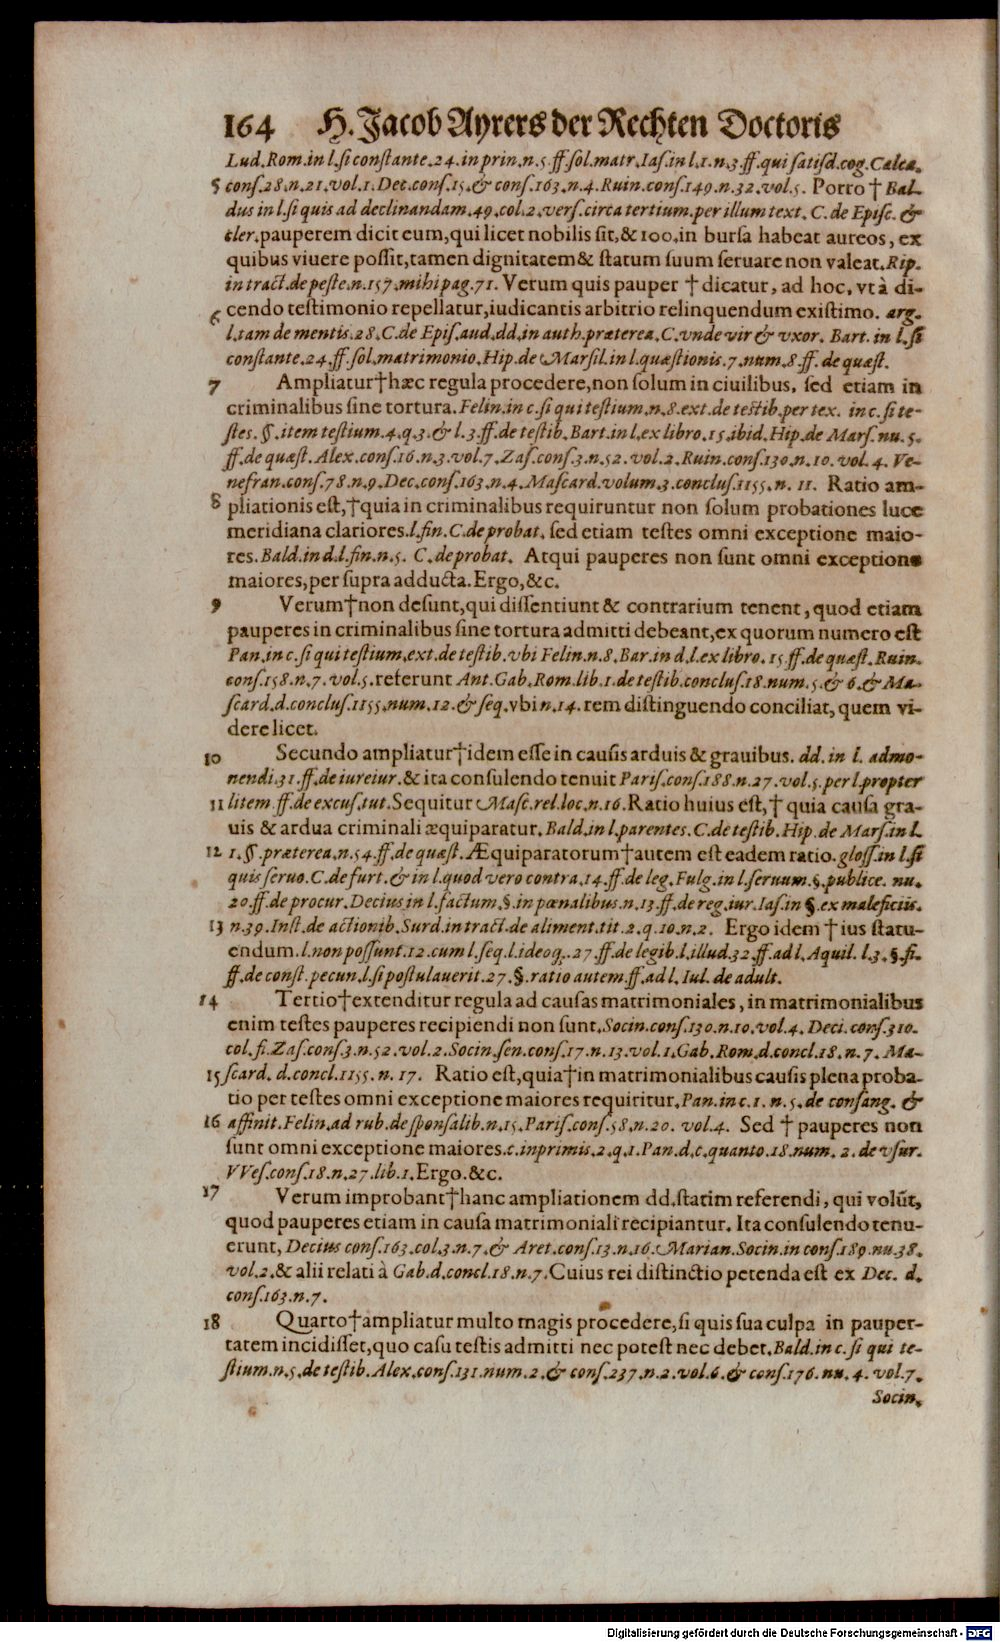 164 H. Jacob Ayrers der Rechten Doctoris
Lud. Rom. in l. si constante. 24. in prin. n. 5. ff. sol. matr. Ias. in l. 1. n. 3. ff. qui satisd. cog. Calca.
5 cons. 28. n. 21. vol. 1. Dec. cons. 15. & cons. 163. n. 4. Ruin. cons. 149. n. 32. vol. 5. Porro † Bal-
dus in l. si quis ad declinandam. 49. col. 2. vers. circa tertium. per illum text. C. de Episc. &
cler. pauperem dicit eum, qui licet nobilis sit, & 100. in bursa habeat aureos, ex
quibus viuere possit, tamen dignitatem & statum suum seruare non valeat. Rip.
in tract. de peste. n. 157. mihi pag. 71. Verum quis pauper † dicatur, ad hoc, vt à di-
6 cendo testimonio repellatur, iudicantis arbitrio relinquendum existimo. arg.
l. tam de mentis. 28. C. de Epis. aud. dd. in auth. præterea. C. vnde vir & vxor. Bart. in l. si
constante. 24. ff. sol. matrimonio. Hip. de Marsil. in l. quæstionis. 7. num. 8. ff. de quæst.
7 Ampliatur † hæc regula procedere, non solum in ciuilibus, sed etiam in
criminalibus sine tortura. Felin. in c. si qui testium. n. 8. ext. de testib. per tex. in c. si te-
stes. §. item testium. 4. q. 3. & l. 3. ff. de testib. Bart. in l. ex libro. 15. ibid. Hip. de Mars. nu. 5.
ff. de quæst. Alex. cons. 16. n. 3. vol. 7. Zas. cons. 3. n. 52. vol. 2. Ruin. cons. 130. n. 10. vol. 4. Ve-
nefran. cons. 78. n. 9. Dec. cons. 163. n. 4. Mascard. volum. 3. conclus. 1155. n. 11. Ratio am-
8 pliationis est, † quia in criminalibus requiruntur non solum probationes luce
meridiana clariores. l. fin. C. de probat. sed etiam testes omni exceptione maio-
res. Bald. in d. l. fin. n. 5. C. de probat. Atqui pauperes non sunt omni exceptione
maiores, per supra adducta. Ergo, &c.
9 Verum † non desunt, qui dissentiunt & contrarium tenent, quod etiam
pauperes in criminalibus sine tortura admitti debeant, ex quorum numero est
Pan. in c. si qui testium. ext. de testib. vbi Felin. n. 8. Bar. in d. l. ex libro. 15. ff. de quæst. Ruin.
cons. 158. n. 7. vol. 5. referunt Ant. Gab. Rom. lib. 1. de testib. conclus. 18. num. 5. & 6. & Ma-
scard. d. conclus. 1155. num. 12. & seq. vbi n. 14. rem distinguendo conciliat, quem vi-
dere licet.
10 Secundo ampliatur † idem esse in causis arduis & grauibus. dd. in l. admo-
nendi. 31. ff. de iureiur. & ita consulendo tenuit Paris. cons. 188. n. 27. vol. 5. per l. propter
11 litem. ff. de excus. tut. Sequitur Masc. rel. loc. n. 16. Ratio huius est, † quia causa gra-
uis & ardua criminali æquiparatur. Bald. in l. parentes. C. de testib. Hip. de Mars. in l.
12 1. §. præterea. n. 54. ff. de quæst. Æquiparatorum † autem est eadem ratio. gloss. in l. si
quis seruo. C. de furt. & in l. quod vero contra. 14. ff. de leg. Fulg. in l. seruum. §. publice. nu.
20. ff. de procur. Decius in l. factum. §. in pœnalibus. n. 13. ff. de reg. iur. Ias. in §. ex maleficiis.
13 n. 39. Inst. de actionib. Surd. in tract. de aliment. tit. 2. q. 10. n. 2. Ergo idem † ius statu-
endum. l. non possunt. 12. cum l. seq. l. ideoq́. 27. ff. de legib. l. illud. 32. ff. ad l. Aquil. l. 3. §. fi.
ff. de const. pecun. l. si postulauerit. 27. §. ratio autem. ff. ad l. Iul. de adult.
14 Tertio † extenditur regula ad causas matrimoniales, in matrimonialibus
enim testes pauperes recipiendi non sunt. Socin. cons. 130. n. 10. vol. 4. Deci. cons. 310.
col. fi. Zas. cons. 3. n. 52. vol. 2. Socin. sen. cons. 17. n. 13. vol. 1. Gab. Rom. d. concl. 18. n. 7. Ma-
15 scard. d. concl. 1155. n. 17. Ratio est, quia † in matrimonialibus causis plena proba-
tio per testes omni exceptione maiores requiritur. Pan. in c. 1. n. 5. de consang. &
16 affinit. Felin. ad rub. de sponsalib. n. 15. Paris. cons. 58. n. 20. vol. 4. Sed † pauperes non
sunt omni exceptione maiores. c. inprimis. 2. q. 1. Pan. d. c. quanto. 18. num. 2. de vsur.
VVes. cons. 18. n. 27. lib. 1. Ergo. &c.
17 Verum improbant † hanc ampliationem dd. statim referendi, qui volũt,
quod pauperes etiam in causa matrimoniali recipiantur. Ita consulendo tenu-
erunt, Decius cons. 163. col. 3. n. 7. & Aret. cons. 13. n. 16. Marian. Socin. in cons. 189. nu. 38.
vol. 2. & alii relati à Gab. d. concl. 18. n. 7. Cuius rei distinctio petenda est ex Dec. d.
cons. 163. n. 7.
18 Quarto † ampliatur multo magis procedere, si quis sua culpa in pauper-
tatem incidisset, quo casu testis admitti nec potest nec debet. Bald. in c. si qui te-
stium. n. 5. de testib. Alex. cons. 131. num. 2. & cons. 237. n. 2. vol. 6. & cons. 176. nu. 4. vol. 7.
Socin.
Digitalisierung gefördert durch die Deutsche Forschungsgemeinschaft - DFG